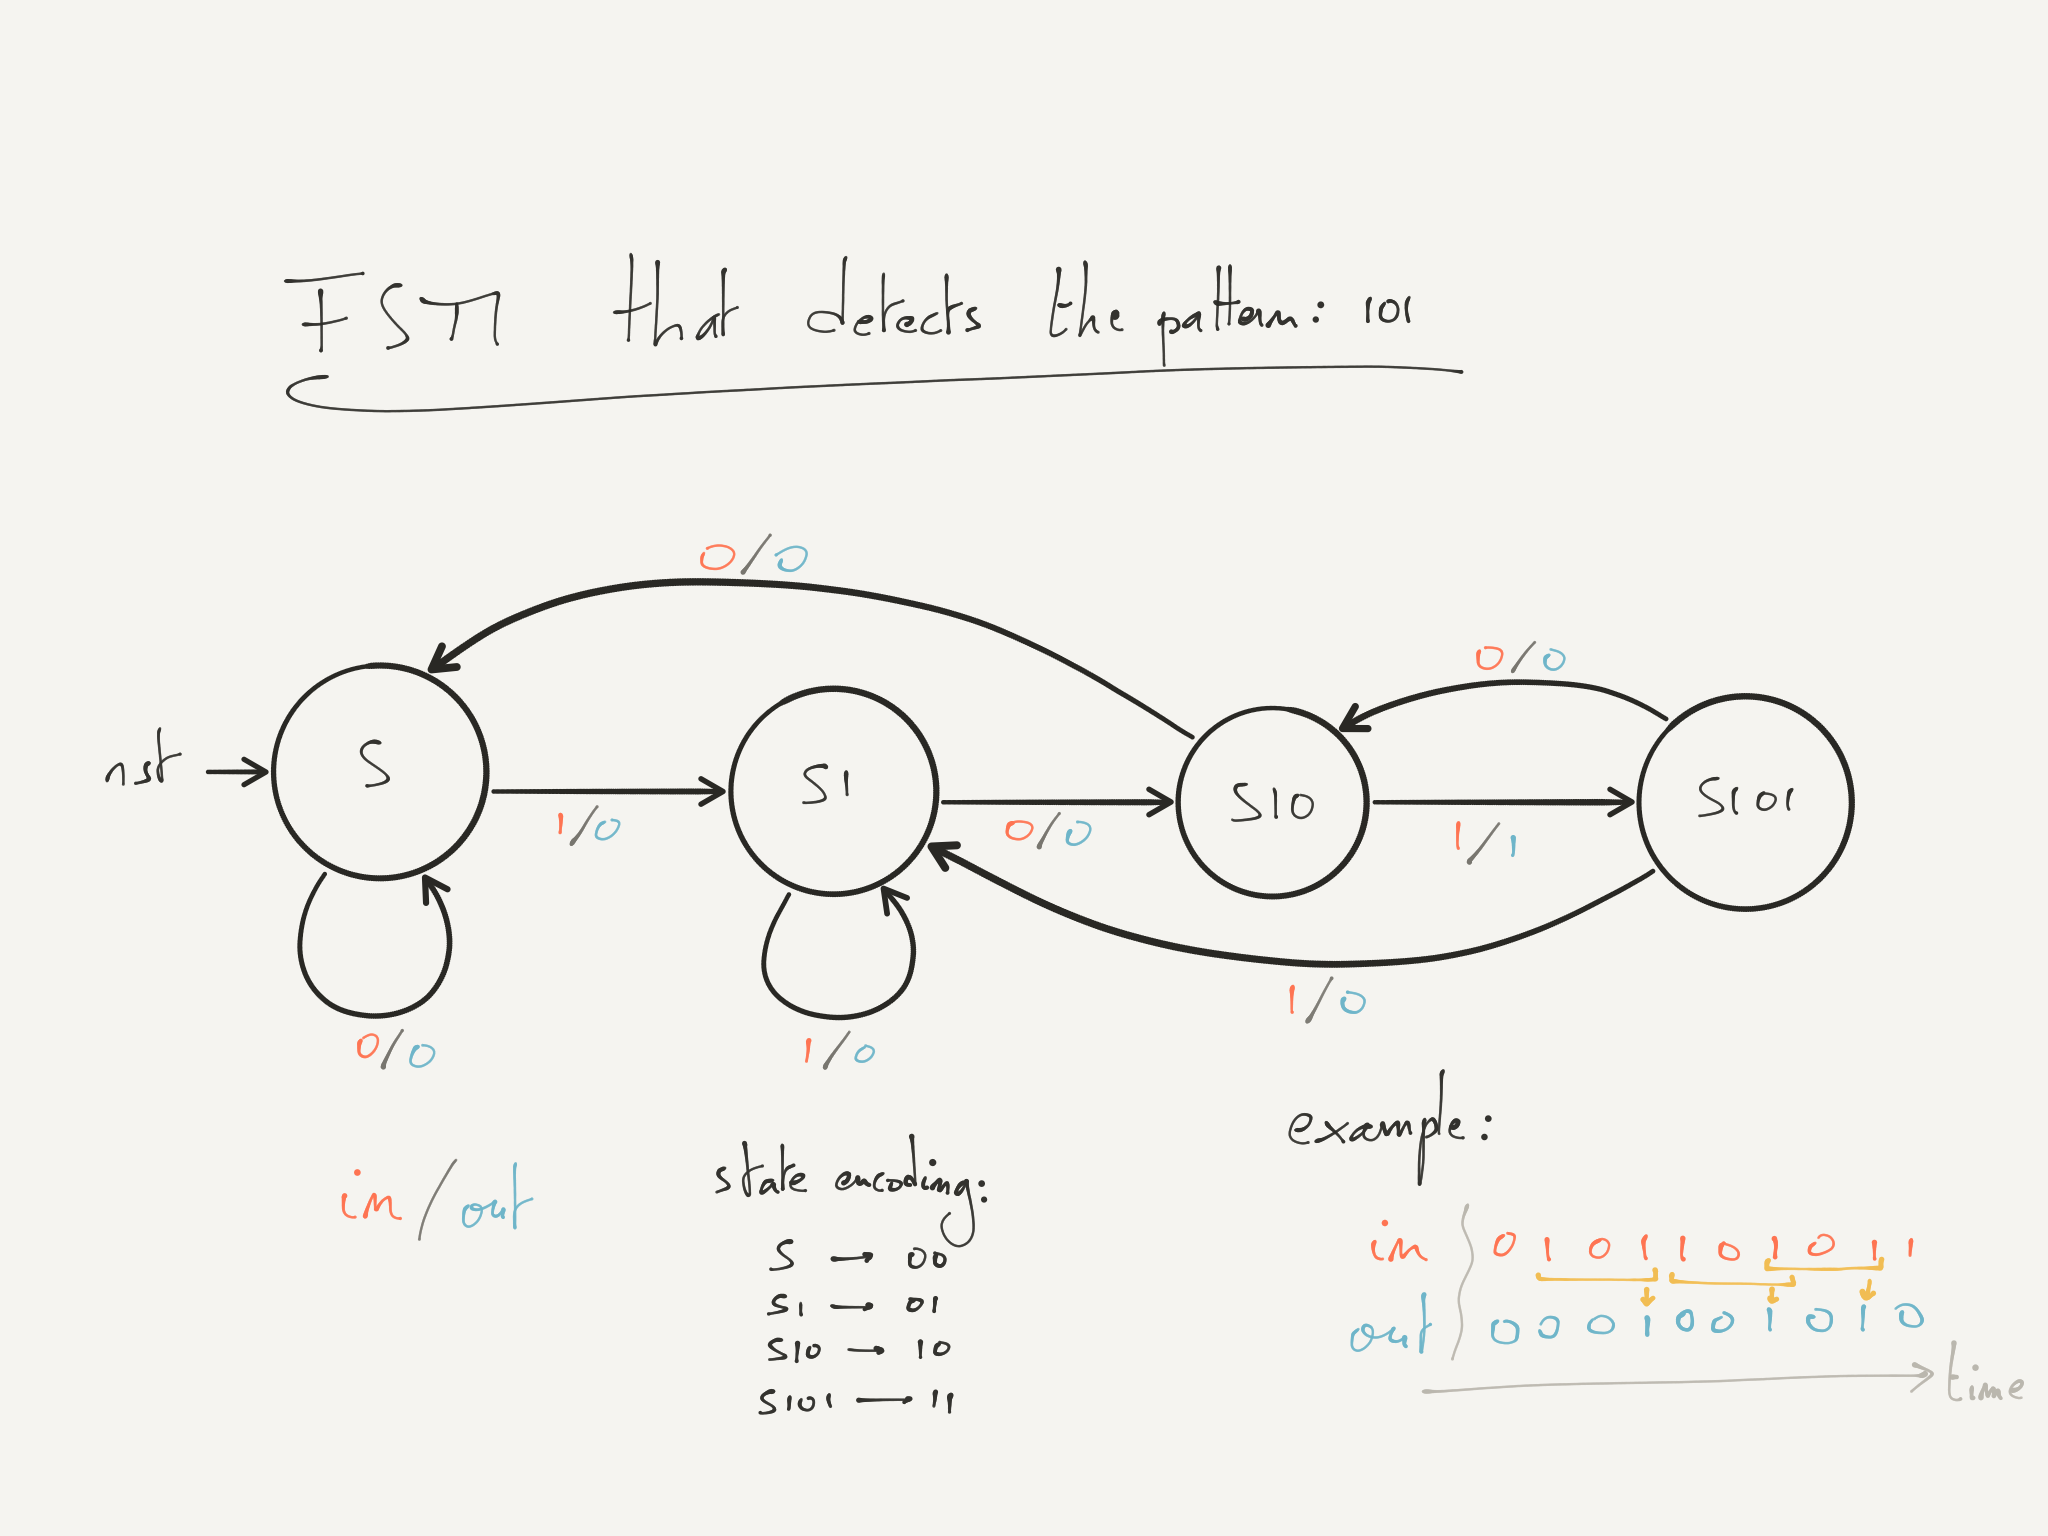 FSM that detects the pattern: 101
0/0
0/0
rst
S
S1
S10
S101
1/0
0/0
1/1
0/0
1/0
1/0
in/out
state encoding:
S → 00
S1 → 01
S10 → 10
S101 → 11
example:
in 0 1 0 1 1 0 1 0 1 1
out 0 0 0 1 0 0 1 0 1 0
time